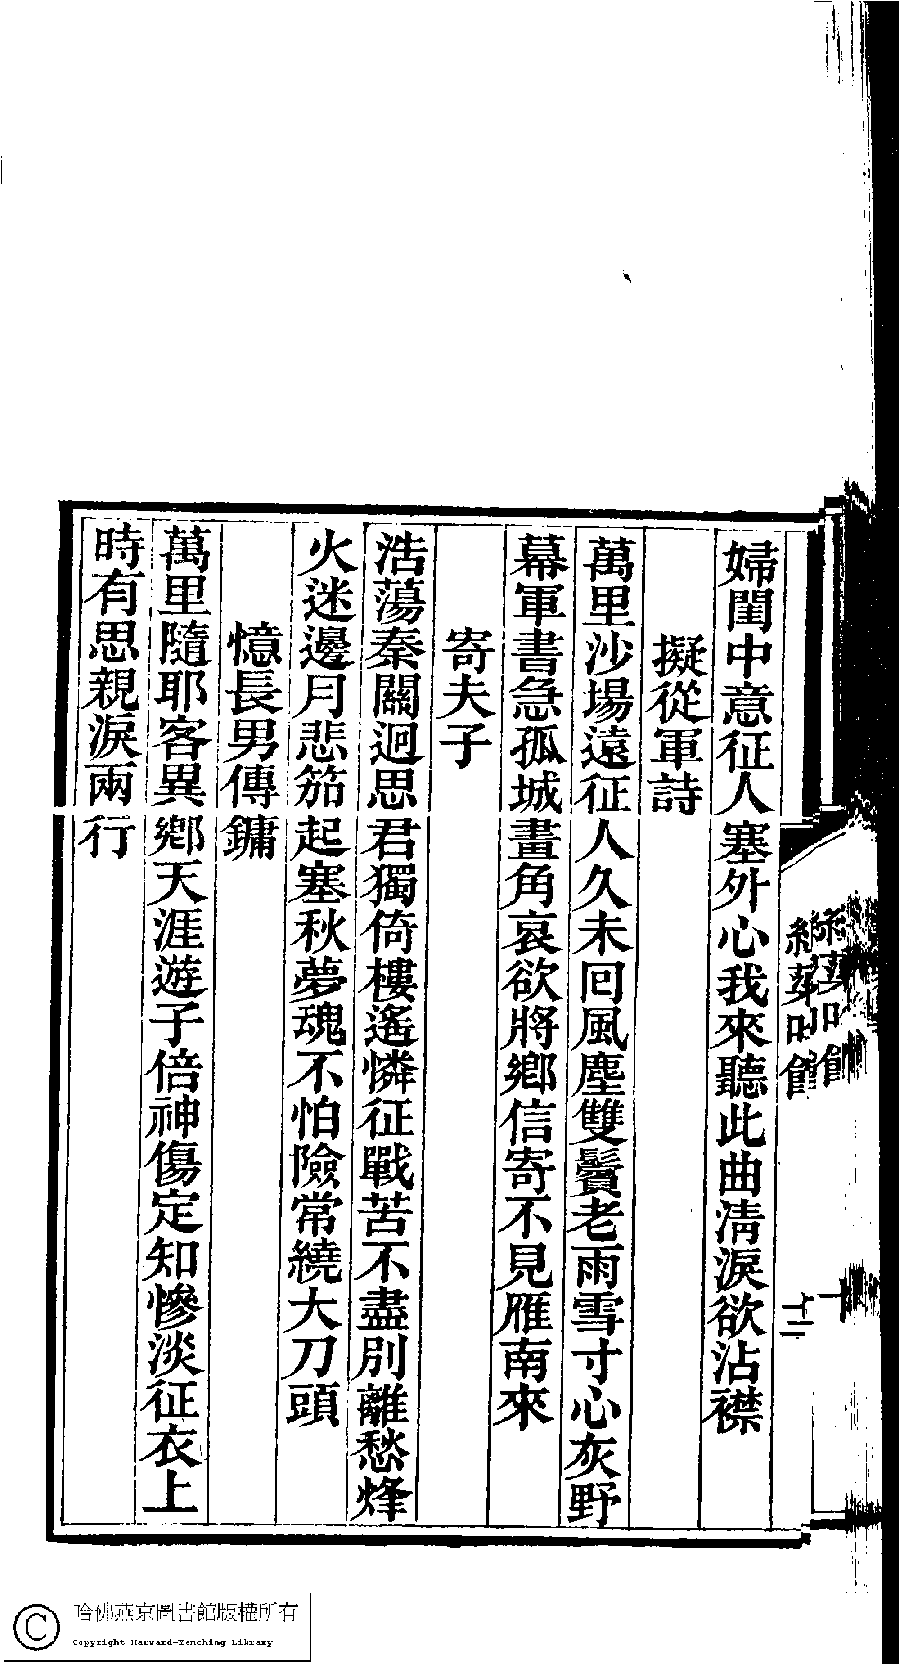 婦閨中意征人塞外心我來聽此曲淸淚欲沾襟
擬從軍詩
萬里沙場遠征人久未回風塵雙鬢老雨雪寸心灰野
幕軍書急孤城畫角哀欲將鄕信寄不見雁南來
寄夫子
浩蕩秦關迥思君獨倚樓遙憐征戰苦不盡別離愁烽
火迷邊月悲笳起塞秋夢魂不怕險常繞大刀頭
憶長男傳鏞
萬里隨耶客異鄕天涯遊子倍神傷定知慘淡征衣上
時有思親淚兩行
十二
哈佛燕京圖書館版權所有
Copyright Harvard-Yenching Library